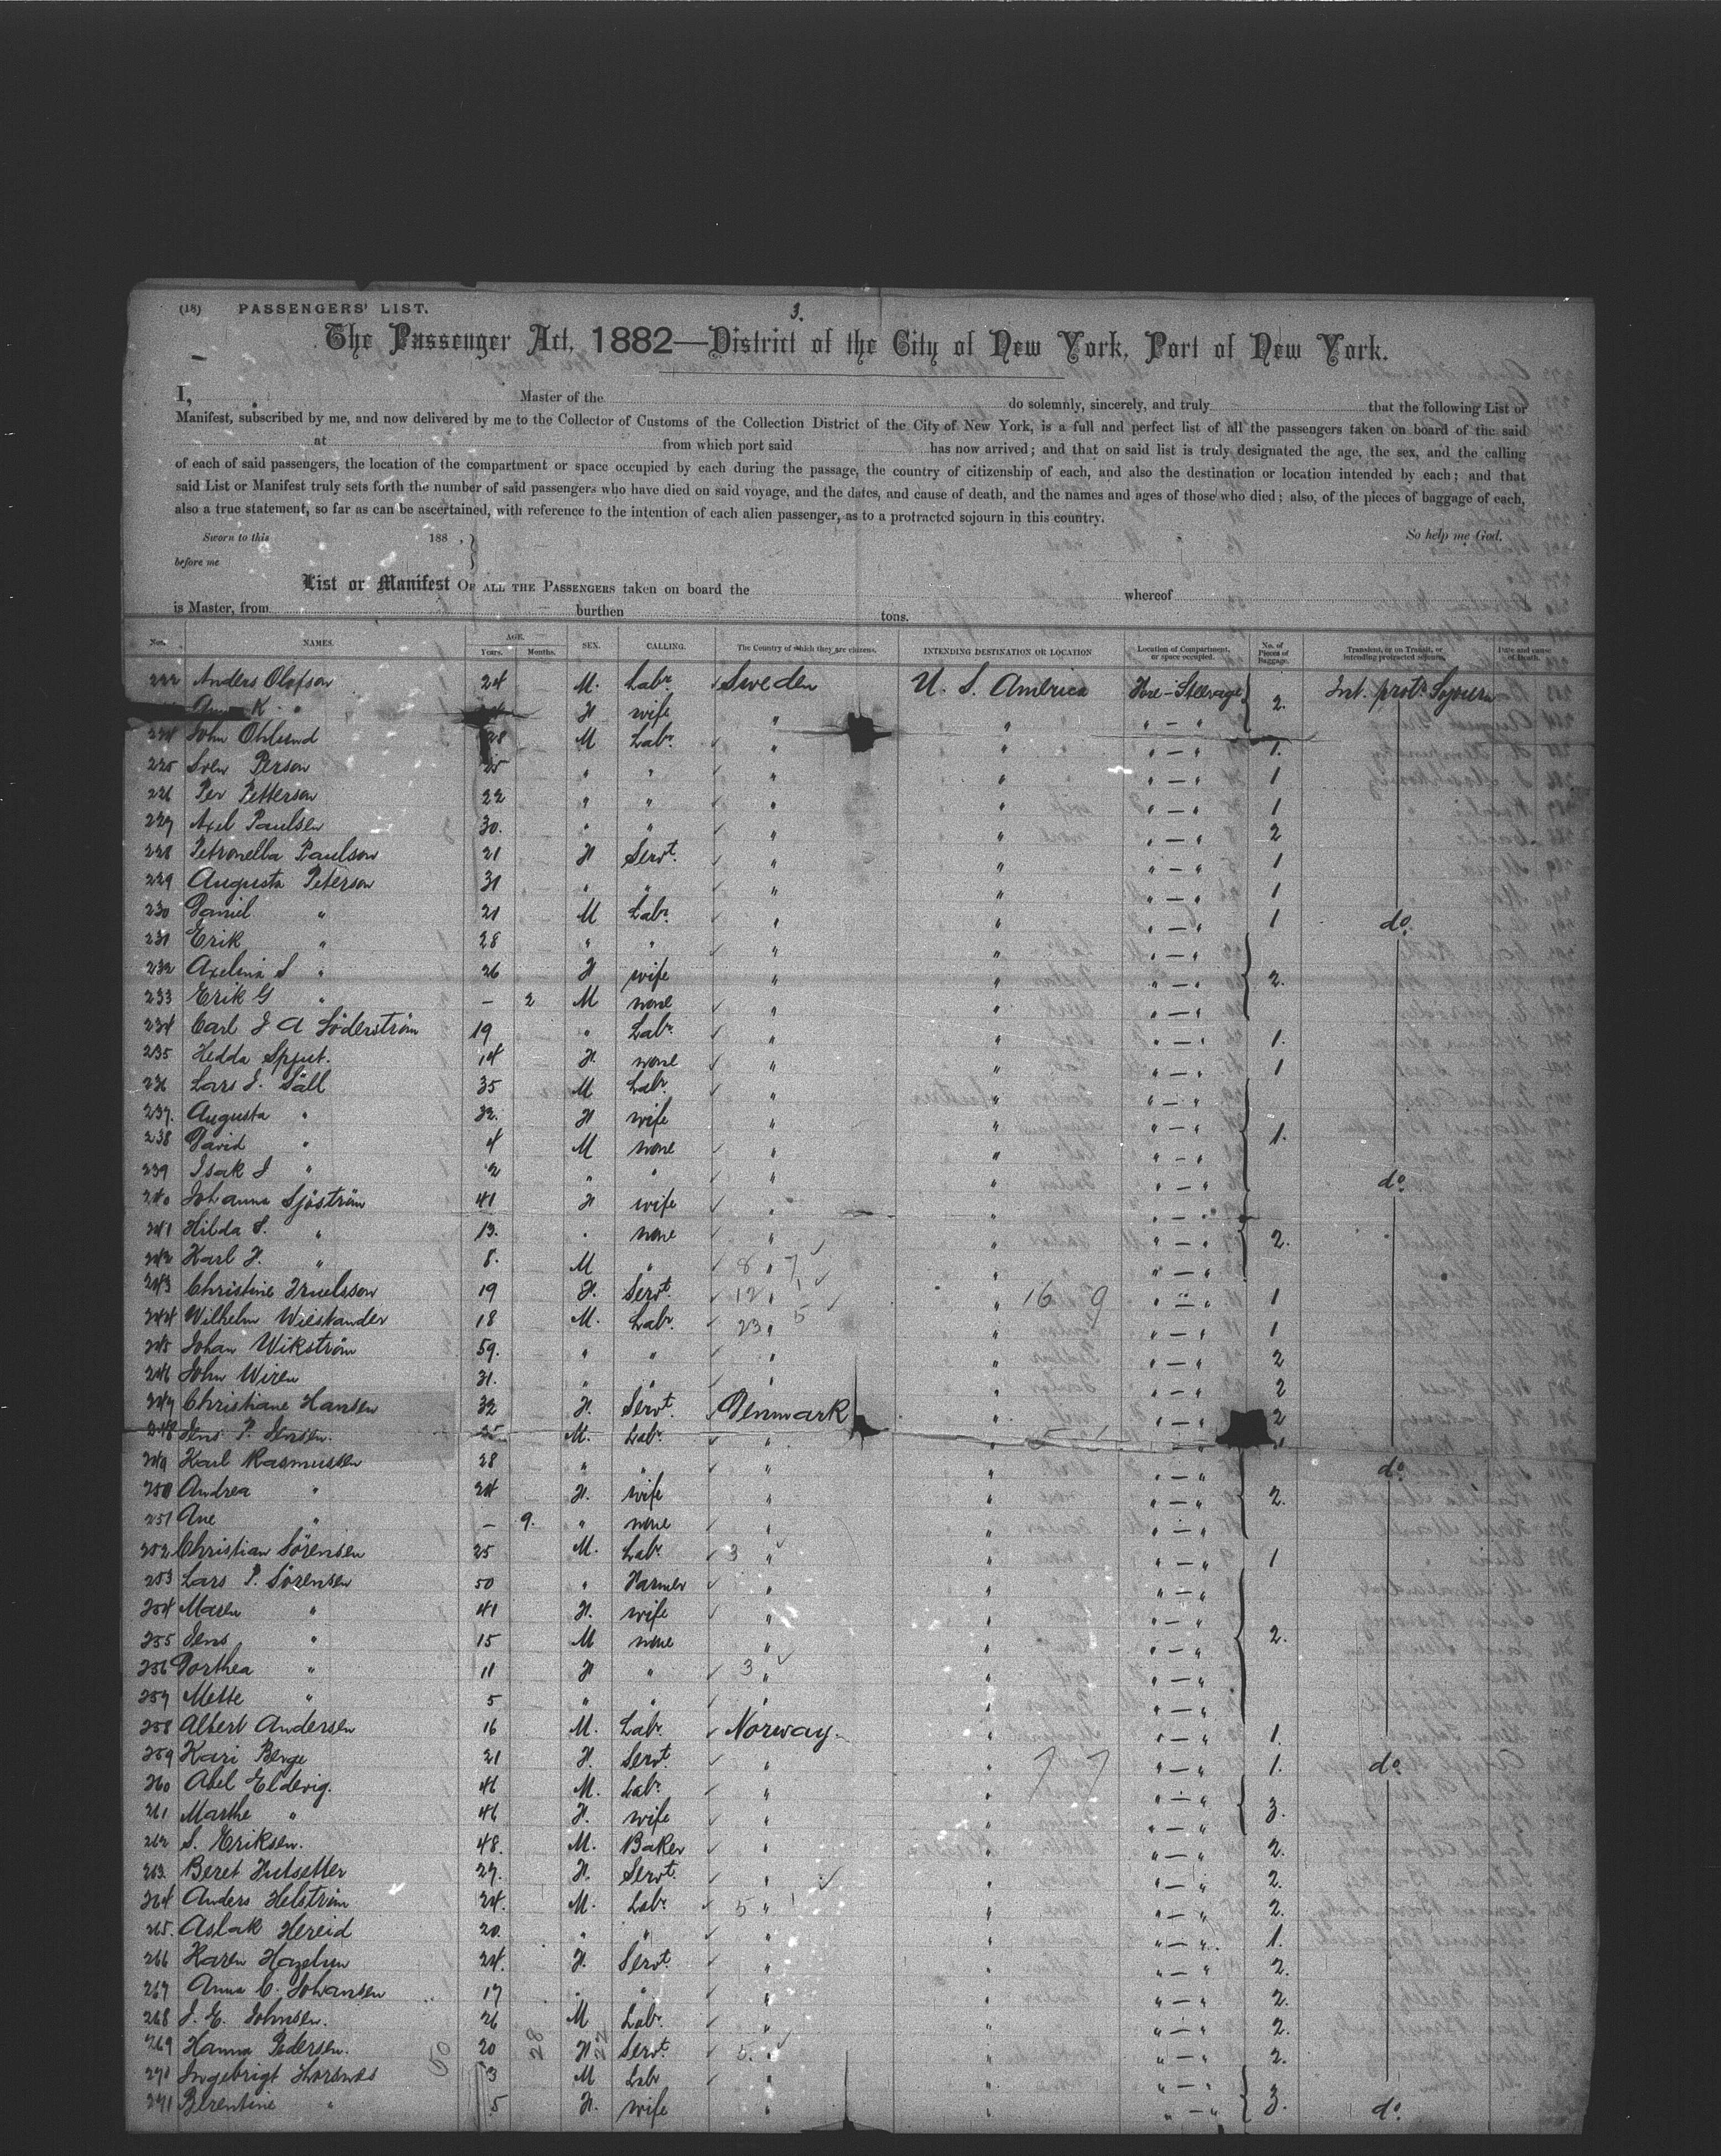 (18) PASSENGERS' LIST. 3.
The Passenger Act, 1882—District of the City of New York, Port of New York.
I, Master of the do solemnly, sincerely, and truly that the following List or
Manifest, subscribed by me, and now delivered by me to the Collector of Customs of the Collection District of the City of New York, is a full and perfect list of all the passengers taken on board of the said
at from which port said has now arrived; and that on said list is truly designated the age, the sex, and the calling
of each of said passengers, the location of the compartment or space occupied by each during the passage, the country of citizenship of each, and also the destination or location intended by each; and that
said List or Manifest truly sets forth the number of said passengers who have died on said voyage, and the dates, and cause of death, and the names and ages of those who died; also, of the pieces of baggage of each,
also a true statement, so far as can be ascertained, with reference to the intention of each alien passenger, as to a protracted sojourn in this country.
Sworn to this 188 , So help me God.
before me
List or Manifest OF ALL THE PASSENGERS taken on board the whereof
is Master, from burthen tons.
Nos. NAMES. AGE. Years. Months. SEX. CALLING. The Country of which they are citizens. INTENDING DESTINATION OR LOCATION Location of Compartment, or space occupied. No. of Pieces of Baggage. Transient, or on Transit, or intending protracted sojourn. Date and cause of Death.
222 Anders Olofson 24 M. Labr. Sweden U. S. America Fore-Steerage 2. Int. prot. Sojourn
K " F wife " " " — "
224 John Ohlund 28 M Labr. " " " — " 1.
225 Sven Person 25 " " " " " — " 1
226 Per Petterson 22 " " " " " — " 1
227 Axel Paulsen 30. " " " " " — " 2
228 Petronella Paulson 21 F Servt. " " " — " 1
229 Augusta Peterson 31 " " " " " — " 1
230 Daniel " 21 M Labr. " " " — " 1 do.
231 Erik " 28 " " " " " — "
232 Axelina S " 26 F wife " " " — " 2.
233 Erik G " — 2 M none " " " — "
234 Carl J A Söderström 19 " Labr. " " " — " 1.
235 Hedda Spjut. 14 F. none " " " — " 1
236 Lars J. Säll 35 M Labr. " " " — "
237. Augusta " 32. F wife " " " — "
238 David " 4 M none " " " — " 1.
239 Isak J " 2 " " " " " — " do.
240 Johanna Sjöström 41 F wife " " " — "
241 Hilda S. " 13. " none " " " — " 2.
242 Karl F. " 8. M " 8 " 7 " " — "
243 Christine 19 F. Servt. 12 " 1 " 16 9 " — " 1
244 Wilhelm Wieslander 18 M. Labr. 23 " 5 " " — " 1
245 Johan Wikström 59. " " " " " — " 2
246 John Wiren 31. " " " " " — " 2
247 Christiane Hansen 32 F. Servt. Denmark " " — " 2
248 Jens P. Jensen. 25 M. Labr. " "
249 Karl Rasmussen 28 " " " " " — " do.
250 Andrea " 24 F. wife " " " — " 2.
251 Ane " — 9. " none " " " — "
252 Christian Sörensen 25 M. Labr. 3 " " " — " 1
253 Lars P. Sörensen 50 " Farmer " " " — "
254 Maren " 41 F. wife " " " — "
255 Jens " 15 M none " " " — " 2.
256 Dorthea " 11 F " 3 " " " — "
257 Mette " 5 " " " " " — "
258 Albert Andersen 16 M. Labr. Norway. " " — " 1.
259 Kari Berge 21 F. Servt. " " 7 7 " — " 1. do.
260 Abel Eldevig. 46 M. Labr. " " " — "
261 Marthe " 46 F. wife " " " — " 3.
262 S. Eriksen. 48. M. Baker " " " — " 2.
263. Beret Hutsetter 27. F. Servt. " " " — " 2.
264 Anders Helström 24. M. Labr. 5 " " " — " 2.
265. Aslak Hereid 20. " " " " " — " 1.
266 Karen 24. F. Servt. " " " — " 2.
267 Anna C. Johansen 17 " " " " " — " 2.
268 J. E. Johnsen. 26 M Labr. " " " — " 2.
269 Hanna Pedersen. 60 20 28 F 22 Servt. 5. " " " — " 2.
270 Ingebrigt 3 M Labr " " " — "
271 Berentine " 5 F. wife " " " — " 3. do.